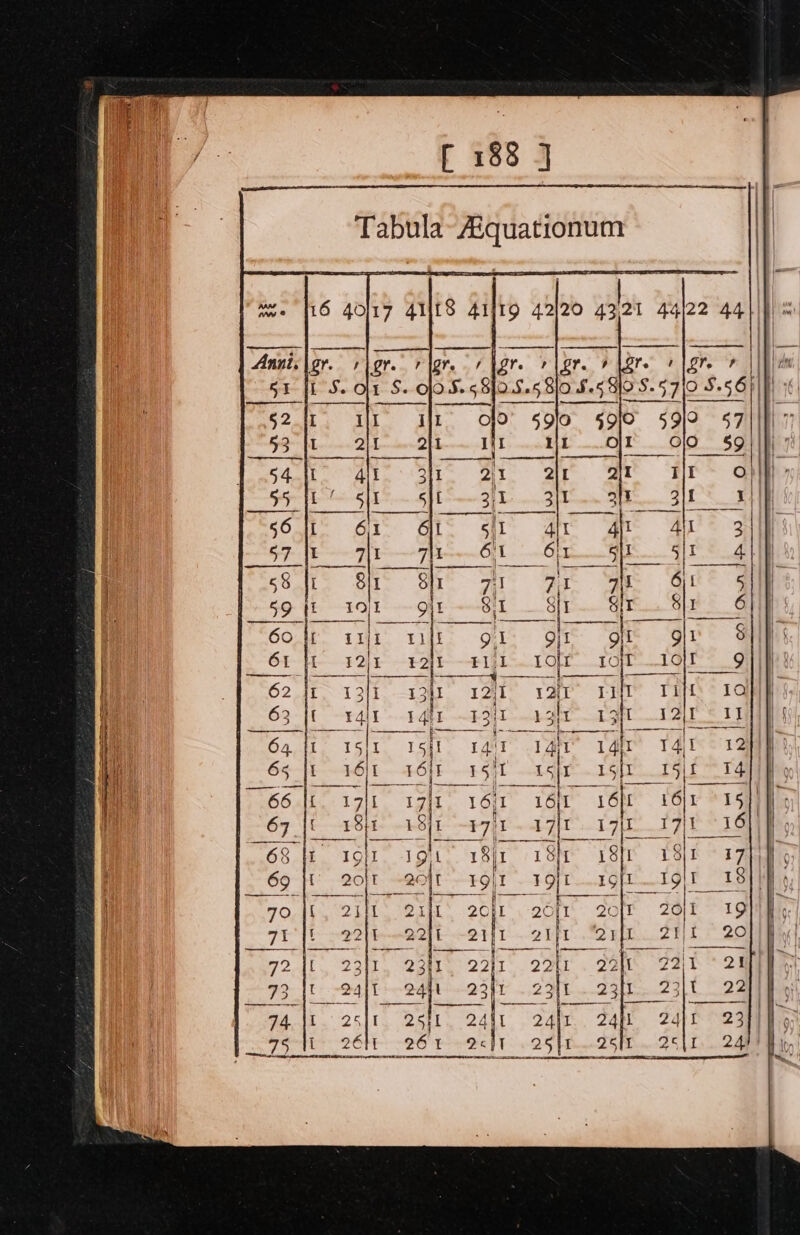 [ 188 ]
Tabula Æquationum
♒. |16 40|17 41|18 41|19 42|20 43|21 44|22 44
Anni. |gr. ′|gr. ′|gr. ′|gr. ′|gr. ′|gr. ′|gr. ′
51 |1 S. 0|1 S. 0|0 S. 58|0 S. 58|0 S. 58|0 S. 57|0 S. 56
52 |1 1|1 1|1 0|0 59|0 59|0 59|0 57
53 |1 2|1 2|1 1|1 1|1 0|1 0|0 59
54 |1 4|1 3|1 2|1 2|1 2|1 1|1 0
55 |1 5|1 5|1 3|1 3|1 3|1 3|1 1
56 |1 6|1 6|1 5|1 4|1 4|1 4|1 3
57 |1 7|1 7|1 6|1 6|1 5|1 5|1 4
58 |1 8|1 8|1 7|1 7|1 7|1 6|1 5
59 |1 10|1 9|1 8|1 8|1 8|1 8|1 6
60 |1 11|1 11|1 9|1 9|1 9|1 9|1 8
61 |1 12|1 12|1 11|1 10|1 10|1 10|1 9
62 |1 13|1 13|1 12|1 12|1 11|1 11|1 10
63 |1 14|1 14|1 13|1 13|1 13|1 12|1 11
64 |1 15|1 15|1 14|1 14|1 14|1 14|1 12
65 |1 16|1 16|1 15|1 15|1 15|1 15|1 14
66 |1 17|1 17|1 16|1 16|1 16|1 16|1 15
67 |1 18|1 18|1 17|1 17|1 17|1 17|1 16
68 |1 19|1 19|1 18|1 18|1 18|1 18|1 17
69 |1 20|1 20|1 19|1 19|1 19|1 19|1 18
70 |1 21|1 21|1 20|1 20|1 20|1 20|1 19
71 |1 22|1 22|1 21|1 21|1 21|1 21|1 20
72 |1 23|1 23|1 22|1 22|1 22|1 22|1 21
73 |1 24|1 24|1 23|1 23|1 23|1 23|1 22
74 |1 25|1 25|1 24|1 24|1 24|1 24|1 23
75 |1 26|1 26 1 25|1 25|1 25|1 25|1 24